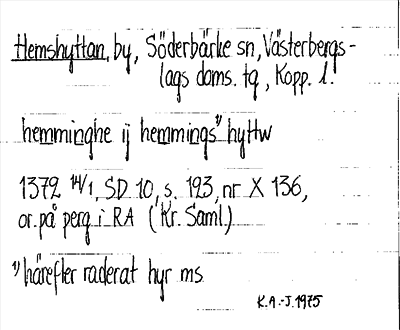 Hemshyttan, by, Söderbärke sn, Västerbergs-
lags doms. tg, Kopp. l.
hemminghe ij hemmings¹⁾ hyttw
1379 14/1, SD 10, s. 193, nr X 136,
or. på perg i RA (Kr. Saml.)
¹⁾ härefter raderat hyr ms
K.A.-J. 1975